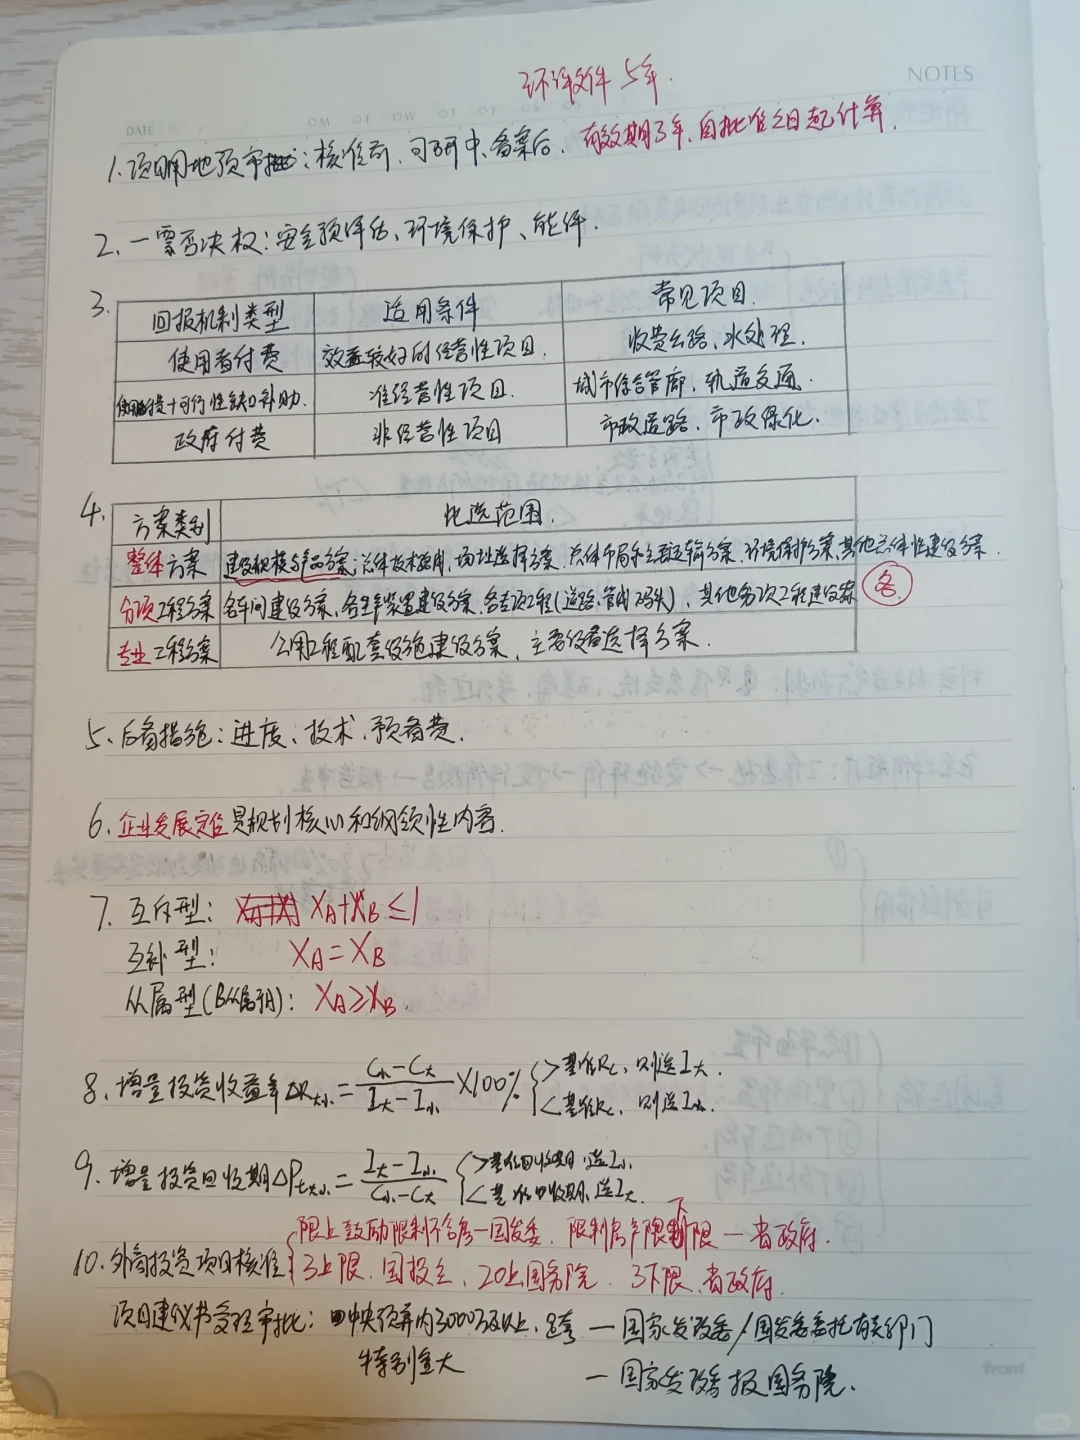 NOTES
环评文件 5年.
DATE
1.项目用地预审:核准前、可研中、备案后. 有效期3年,自批准之日起计算.
2、一票否决权:安全预评估、环境保护、能评.
3.
回报机制类型 适用条件 常见项目.
使用者付费 效益较好的经营性项目. 收费公路、水处理.
使用者付费+可行性缺口补助. 准经营性项目. 城市综合管廊、轨道交通.
政府付费 非经营性项目 市政道路、市政绿化.
4.
方案类别 比选范围.
整体方案 建设规模与产品方案;总体技术,场址选择方案.总体布局和主要运输方案.环境保护方案,其他总体性建设方案.
分项工程方案 各车间建设方案、各生产装置建设方案、各专项工程(道路、管线、码头)、其他分项工程建设方案 各
专业工程方案 公用工程配套设施建设方案、主要设备选择方案.
5、后备措施:进度、技术、预备费.
6.企业发展定位是规划核心和纲领性内容.
7.互斥型: XA+XB≤1
互补型: XA=XB
从属型(B从属于A): XA≥XB.
8、增量投资收益率ΔR大小.=(C小-C大)/(I大-I小)×100% {>基准Rc,则选I大.
<基准Rc,则选I小.
9、增量投资回收期ΔPt大小.=(I大-I小)/(C小-C大) {>基准回收期,选I小.
<基准回收期,选I大.
10.外商投资项目核准{限上鼓励限制不含房—国发委、限制房产限制下限—省政府.
3上限、国投主、20上国务院. 3下限、省政府.
项目建议书受理审批: 中央预算内3000万以上、跨 —国家发改委/国发委委托有关部门
特别重大 —国家发改委报国务院.
front